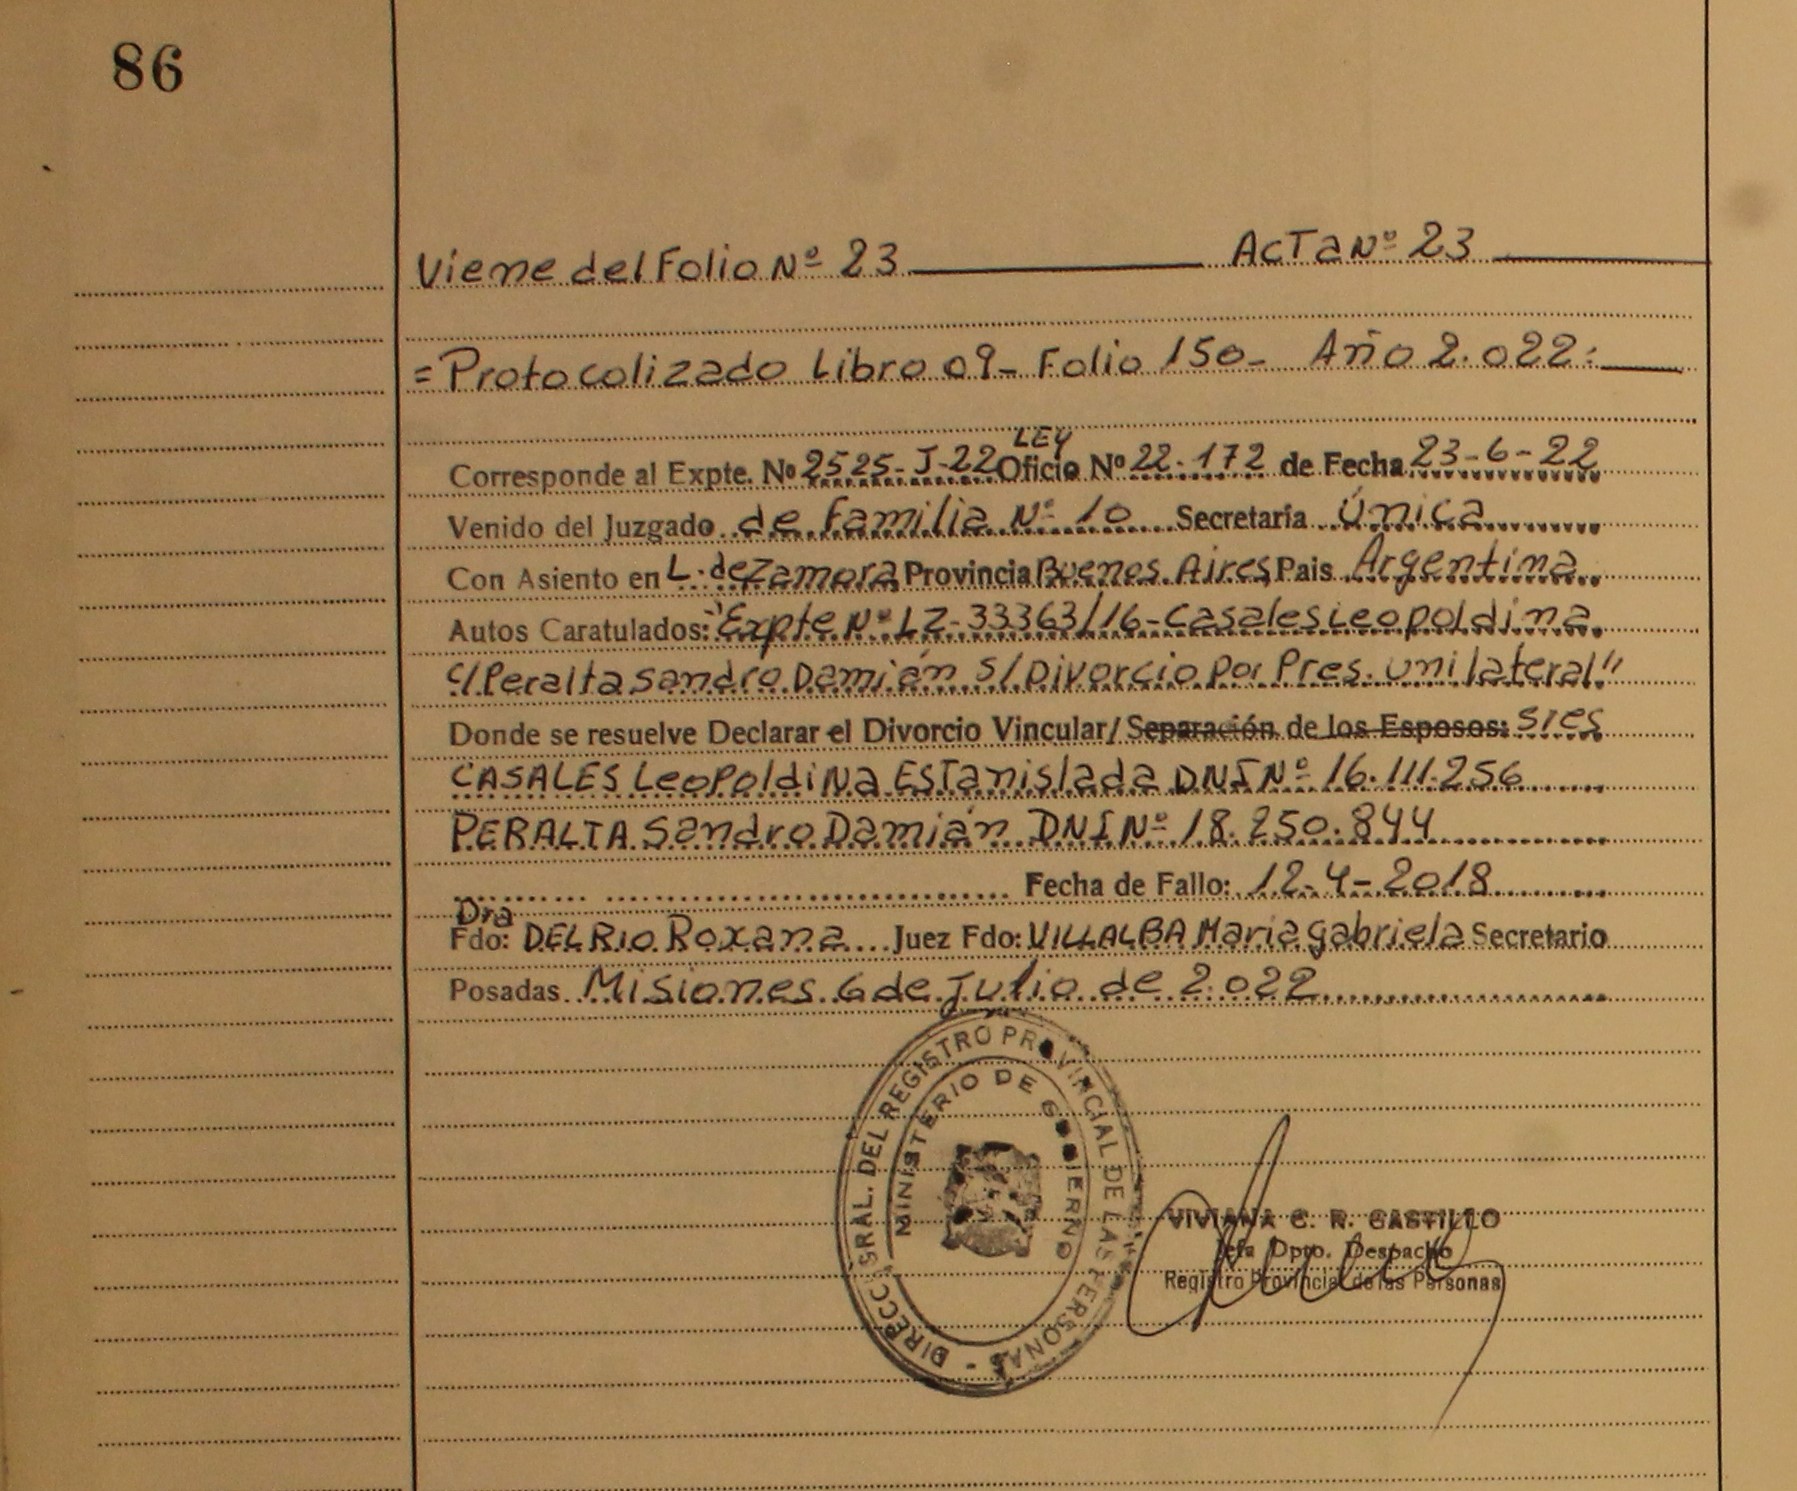 86
Viene del Folio Nº 23 ActaNº 23
=Protocolizado Libro 09- Folio 150- Año 2.022:
LEY
Corresponde al Expte. Nº 2525-J-22 Oficio Nº 22.172 de Fecha 23-6-22
Venido del Juzgado de Familia Nº 10 Secretaría Única
Con Asiento en L. de Zamora Provincia Buenos Aires Pais Argentina
Autos Caratulados: "Expte Nº LZ-33363/16-Casales Leopoldina
c/Peralta Sandro Damián s/Divorcio por Pres. Unilateral"
Donde se resuelve Declarar el Divorcio Vincular/ Separación de los Esposos: sres
CASALES Leopoldina Estanislada DNI Nº 16.111.256
PERALTA Sandro Damián DNI Nº 18.250.844
Fecha de Fallo: 12-4-2018
Dra
Fdo: DEL RIO Roxana Juez Fdo: VILLALBA Maria gabriela Secretario
Posadas Misiones 6 de Julio de 2.022
DIRECC. GRAL. DEL REGISTRO PROVINCIAL DE LAS PERSONAS -
MINISTERIO DE GOBIERNO
VIVIANA C. R. CASTILLO
Jefa Dpto. Despacho
Registro Provincial de las Personas